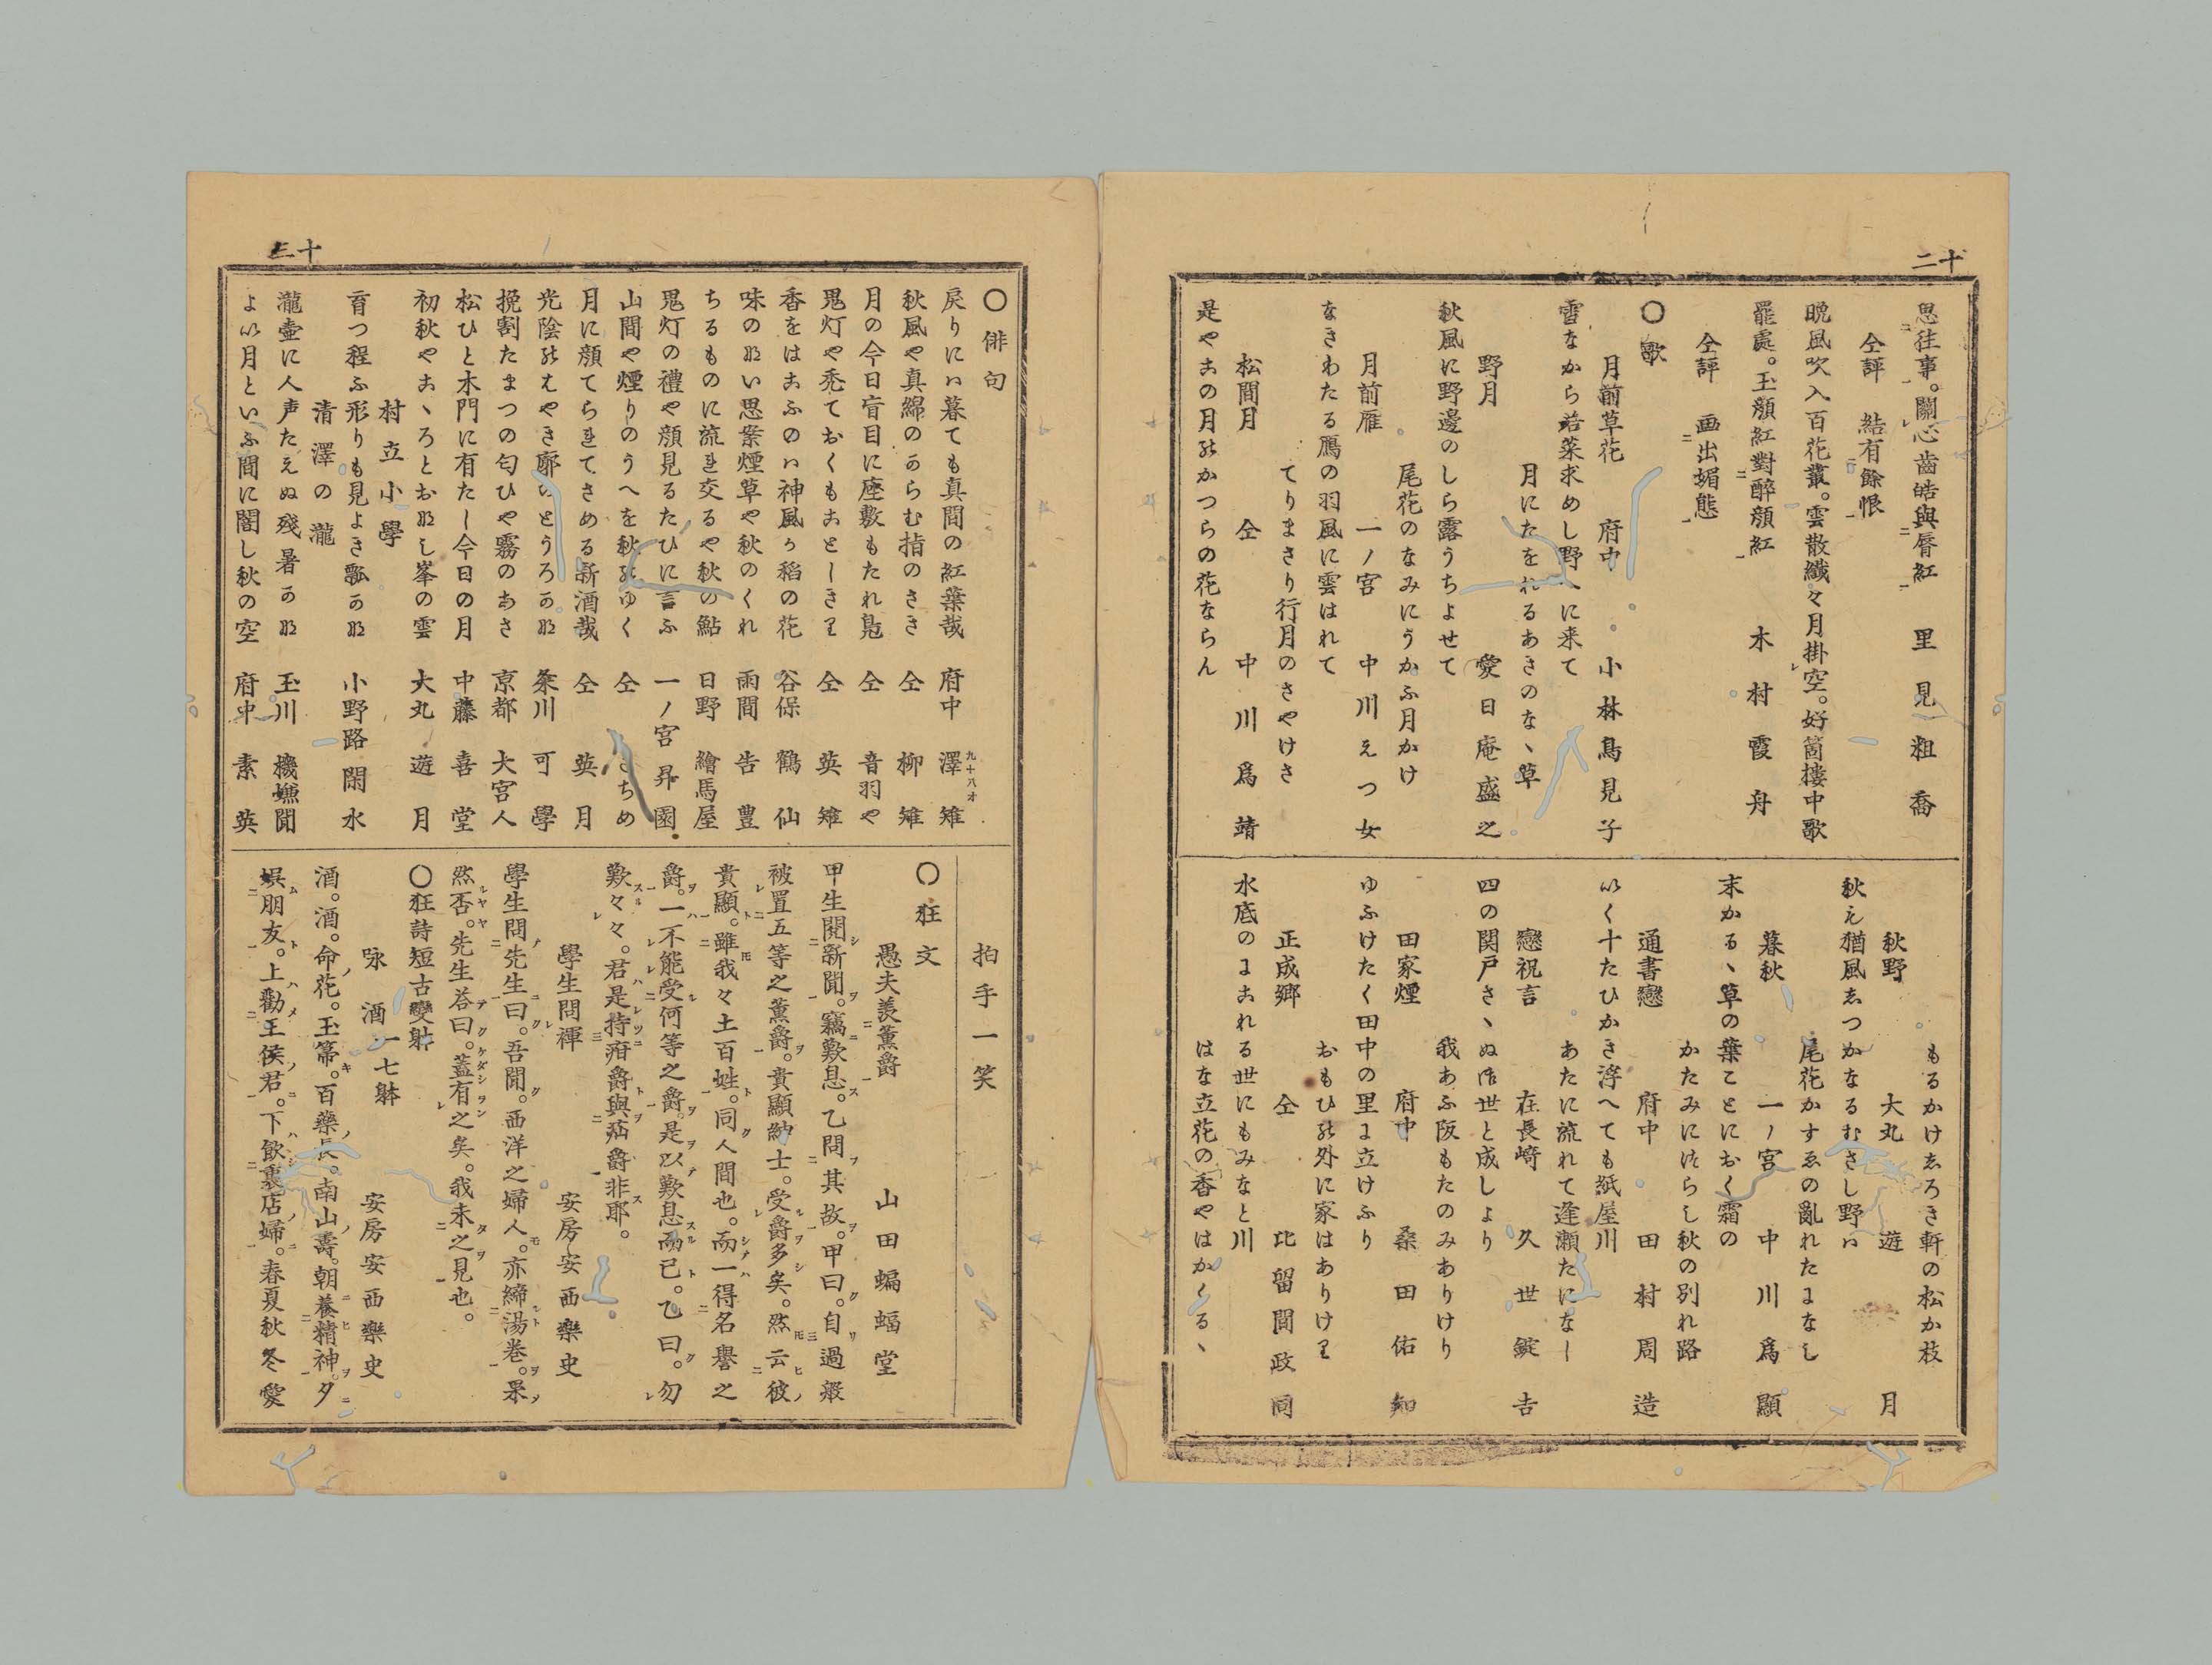 十二
思往事。關心齒皓與唇紅　里見粗喬
仝評　結有餘恨
晩風吹入百花叢。雲散纖々月掛空。好箇樓中歌
罷處。玉顏紅對醉顏紅　木村霞舟
仝評　画出媚態
〇歌
月前草花　府中　小林鳥見子
雪なから若菜求めし野へに来て
月にたをれるあきのなゝ草
野月　愛日庵盛之
秋風に野邊のしら露うちよせて
尾花のなみにうかふ月かけ
月前雁　一ノ宮　中川えつ女
なきわたる鴈の羽風に雲はれて
てりまさり行月のさやけさ
松間月　仝　中川爲靖
是やこの月のかつらの花ならん
もるかけしろき軒の松か枝
秋野　大丸　遊月
秋も猶風しつかなるむさし野ハ
尾花かすゑの亂れたまなし
暮秋　一ノ宮　中川爲顯
末かるゝ草の葉ことにおく霜の
かたみにはらし秋の別れ路
通書戀　府中　田村周造
いく十たひかき浮へても紙屋川
あたに流れて逢瀬たになし
戀祝言　在長崎　久世錠吉
四の関戸さゝぬ御世と成しより
我あふ阪もたのみありけり
田家煙　府中　桑田佑知
ゆふけたく田中の里に立けふり
おもひの外に家はありけり
正成郷　仝　比留間政同
水底のまこれる世にもみなと川
はな立花の香やはかくるゝ
十三
〇俳句
戻りにハ暮ても真間の紅葉哉　府中　九十八才　澤雉
秋風や真綿のからむ指のさき　仝　柳雉
月の今日盲目に座敷もたれ鳧　仝　音羽や
鬼灯や禿ておくもことしきり　仝　英雉
香をはこふのハ神風か稻の花　谷保　鶴仙
味のない思案煙草や秋のくれ　雨間　告豊
ちるものに流れ交るや秋の鮎　日野　繪馬屋
鬼灯の禮や顔見るたひに言ふ　一ノ宮　昇園
山間や煙りのうへを秋のゆく　仝　さちめ
月に顔てらされてさめる新酒哉　仝　英月
光陰のはやき廓のとうろかな　粂川　可學
挽割たまつの匂ひや霧のあさ　京都　大宮人
松ひと木門に有たし今日の月　中藤　喜堂
初秋やこゝろとおなし峯の雲　大丸　遊月
村立小學
育つ程ふ形りも見よき瓢かな　小野路　閑水
清澤の瀧
瀧壷に人声たえぬ殘暑かな　玉川　機嫌聞
よい月といふ間に闇し秋の空　府中　素英
拍手一笑
〇狂文
愚夫羨薫爵　山田蝙蝠堂
甲生閲新聞。竊歎息。乙問其故。甲曰。自過般
被置五等之薫爵。貴顯紳士。受爵多矣。然云彼
貴顯。雖我々土百姓。同人間也。而一得名譽之
爵。一不能受何等之爵。是以歎息而已。乙曰。勿
歎々々。君是持癪爵與疝爵非耶。
學生問褌　安房　安西樂史
學生問先生曰。吾聞。西洋之婦人。亦締湯巻。果
然否。先生荅曰。蓋有之矣。我未之見也。
〇狂詩短古變躰
咏酒　一七躰　安房　安西樂史
酒。酒。命花。玉箒。百藥長。南山壽。朝養精神。夕
娯朋友。上勸王侯君。下飲裏店婦。春夏秋冬愛